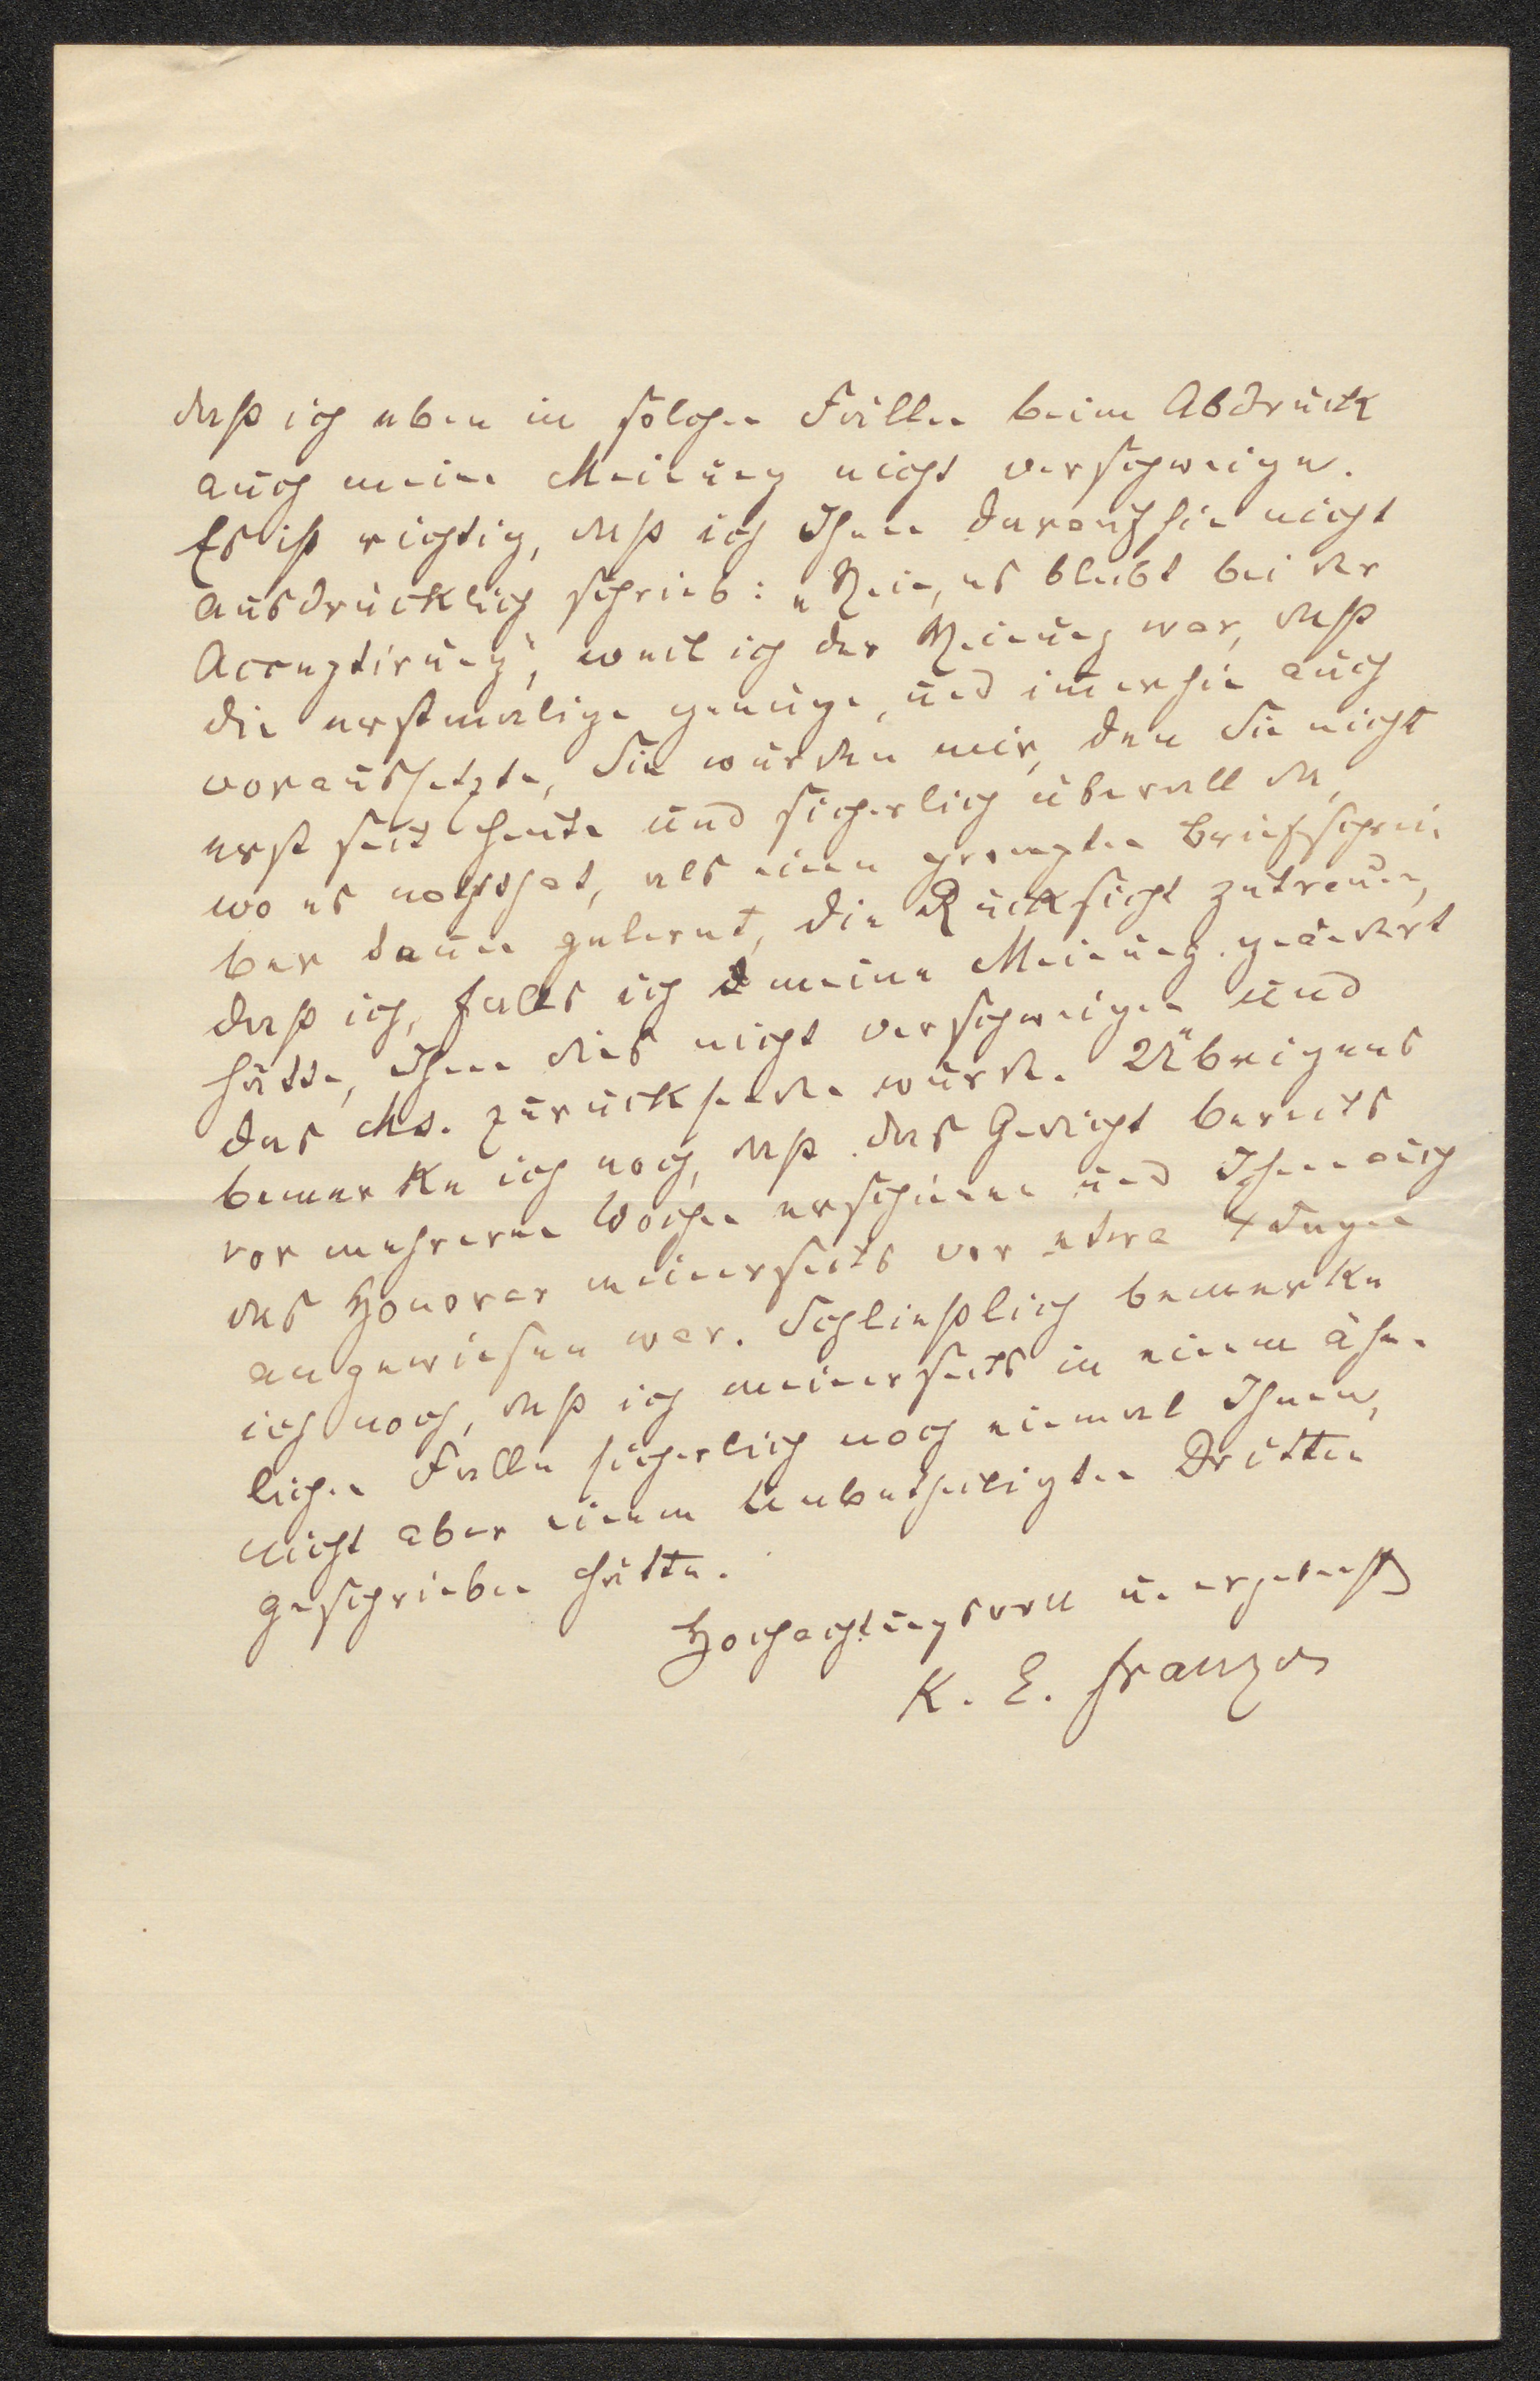 daß ich eben in solchen Fällen beim Abdruck
auch meine Meinung nicht verschweigen.
Es ist richtig, daß ich Ihnen daraufhin nicht
ausdrücklich schrieb: „Nein, es bleibt bei der
Acceptirung“, weil ich der Meinung war, daß
die erstmalige genüge, und immerhin auch
voraussetzte, Sie würden mir, den Sie nicht
erst seit heute und sicherlich überall da,
wo es noththat, als einen prompten Briefschrei-
ber kennen gelernt, die Rücksicht zutrauen,
daß ich, falls ich meine Meinung geändert
hätte, Ihnen dies nicht verschweigen und
das Ms. zurücksenden würde. Übrigens
bemerke ich noch, daß das Gedicht bereits
vor mehreren Wochen erschienen und Ihnen auch
das Honorar meinerseits vor etwa 4 Tagen
angewiesen war. Schließlich bemerke
ich noch, daß ich meinerseits in einem ähn-
lichen Falle sicherlich noch einmal Ihnen,
nicht aber einem unbetheiligten Dritten
geschrieben hätte.
Hochachtungsvoll u ergebenst
K. E. Franzos